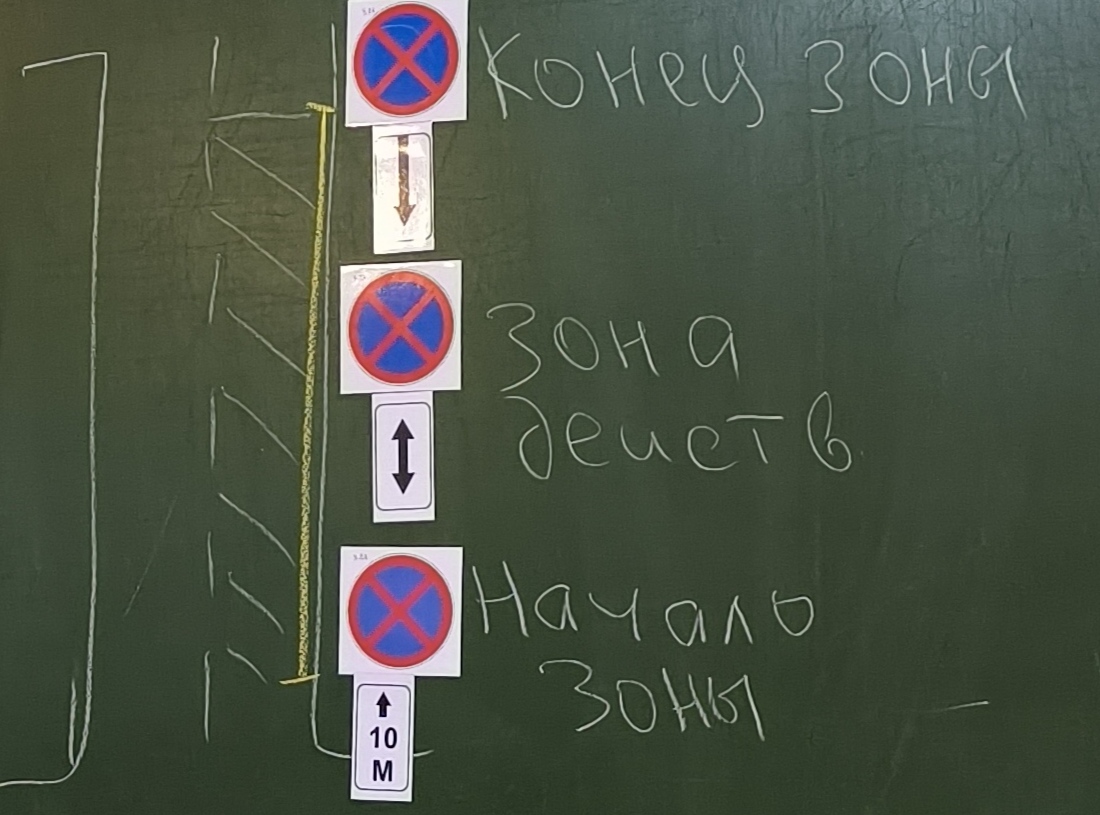 Конец зоны
Зона
действ
Начало
зоны
10
М